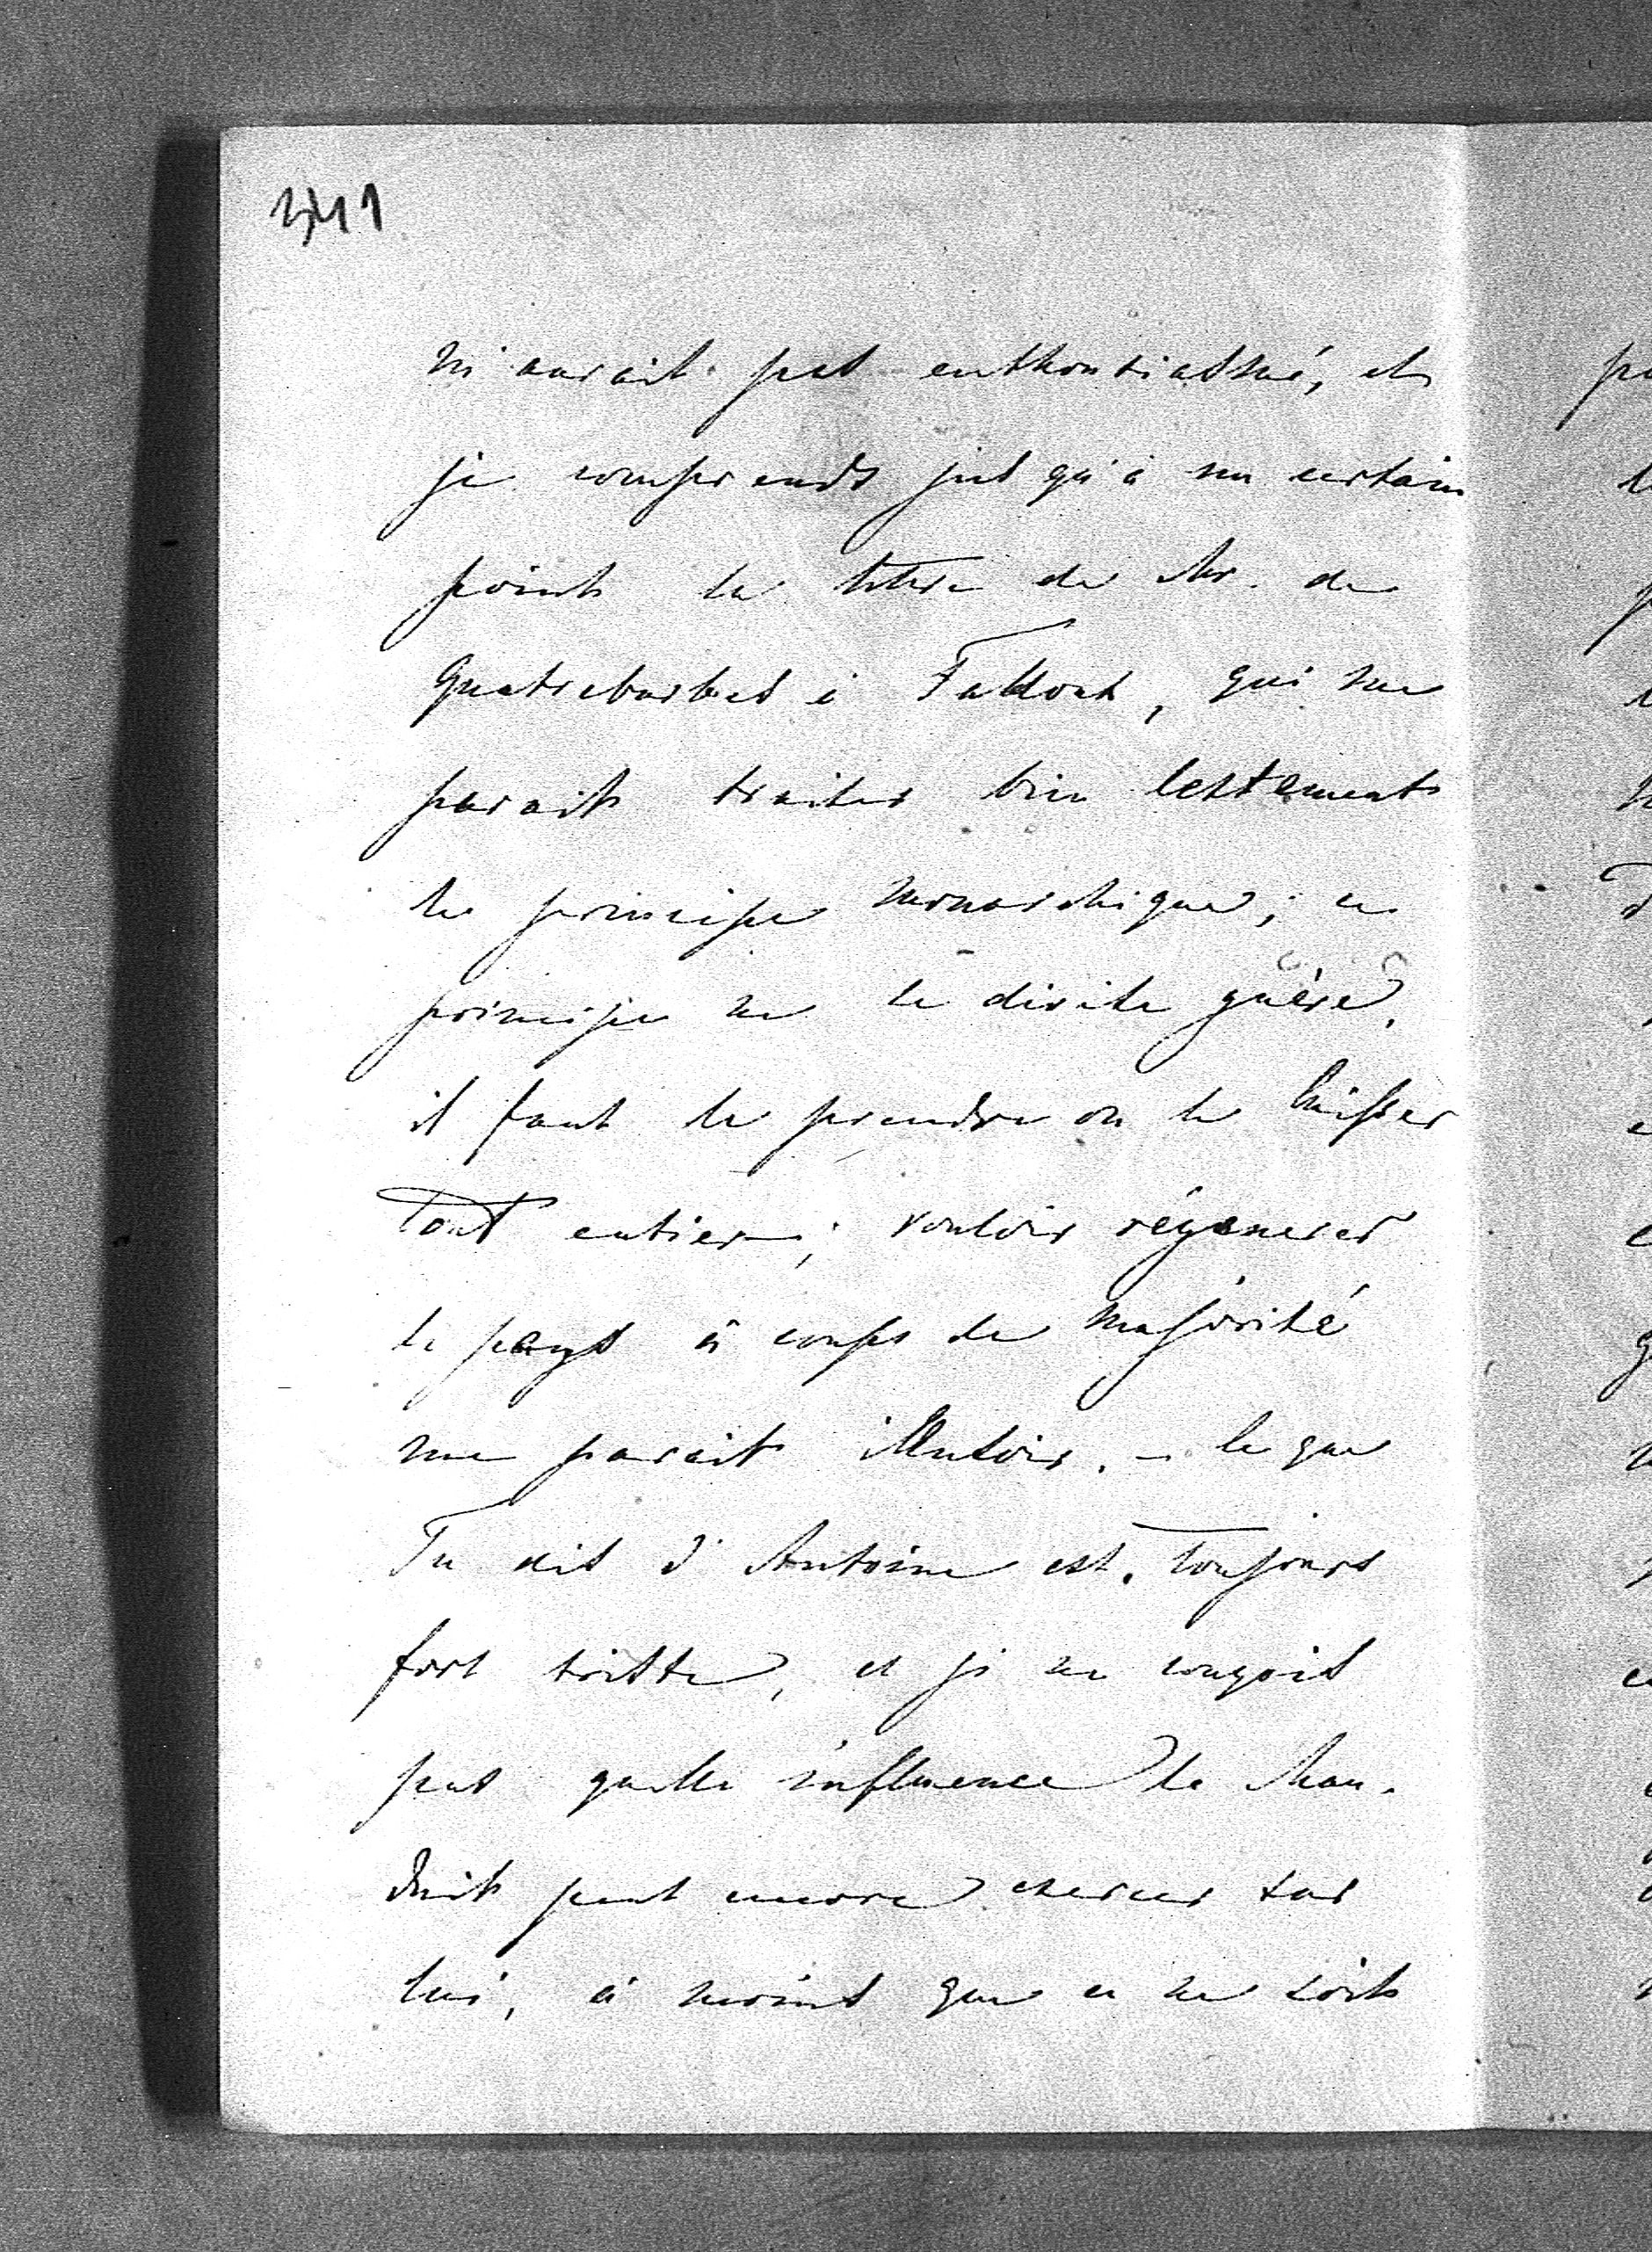 341
m'aurait pas enthousiasmé, et
je comprends jusqu'à un certain
point la lettre de Mr. de
Quatrebarbes à Falloux, qui me
parait traiter bien lestement
le principe monarchique; ce
principe ne se divise guère,
il faut le prendre ou le laisser
tout entier; vouloir régénerer
le pays à coups de majorité
me parait illusoire. - Ce que
Tu dis d'Antoine est toujours
fort triste, et je ne conçois
pas quelle influence le Mau-
duit peut encore exercer sur
lui, à moins que ce ne soit